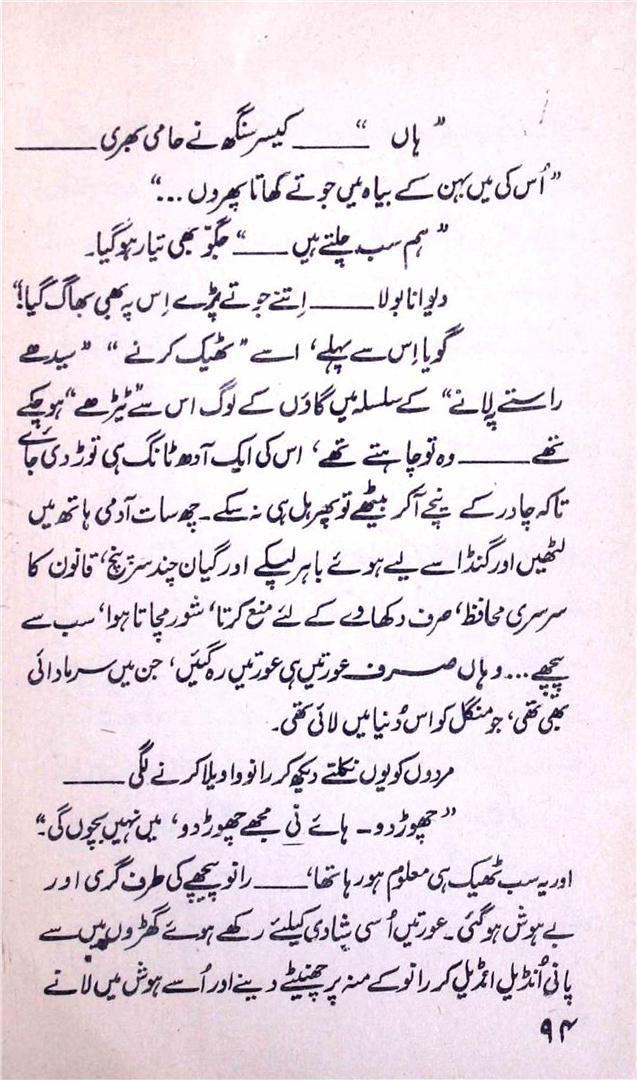 ”ہاں“ ____ کیسر سنگھ نے حامی بھری ____
”اُس کی میں بہن کے بیاہ میں جوتے کھاتا پھروں ...“
”ہم سب چلتے ہیں ____“ جگّو بھی تیار ہو گیا۔
دیوانا بولا ____ اِتنے جوتے پڑے اِس پہ بھی بھاگ گیا!“
گویا اِس سے پہلے، اسے ”ٹھیک کرنے“ ”سیدھے
راستے پہ لانے“ کے سلسلہ میں گاؤں کے لوگ اس سے ”ٹیڑھے“ ہو چکے
تھے ____ وہ تو چاہتے تھے، اس کی ایک آدھ ٹانگ ہی توڑ دی جائے
تاکہ چادر کے نیچے آکر بیٹھے تو پھر ہل ہی نہ سکے۔ چھ سات آدمی ہاتھ میں
لٹھیں اور گنڈاسے لیے ہوئے باہر لپکے اور گیان چند سرپنچ، قانون کا
سرسری محافظ، صرف دکھاوے کے لئے منع کرتا، شور مچاتا ہوا، سب سے
پیچھے ... وہاں صرف عورتیں ہی عورتیں رہ گئیں، جن میں سرمادائی
بھی تھی، جو منگل کو اس دُنیا میں لائی تھی۔
مردوں کو یوں نکلتے دیکھ کر رانو واویلا کرنے لگی ____
”چھوڑ دو۔ ہائے نی مجھے چھوڑ دو، میں نہیں بچوں گی۔“
اور یہ سب ٹھیک ہی معلوم ہو رہا تھا، ____ رانو پیچھے کی طرف گری اور
بے ہوش ہو گئی۔ عورتیں اُسی شادی کیلئے رکھے ہوئے گھڑوں میں سے
پانی اُنڈیل انڈیل کر رانو کے منہ پر چھینٹے دینے اور اُسے ہوش میں لانے
۹۴